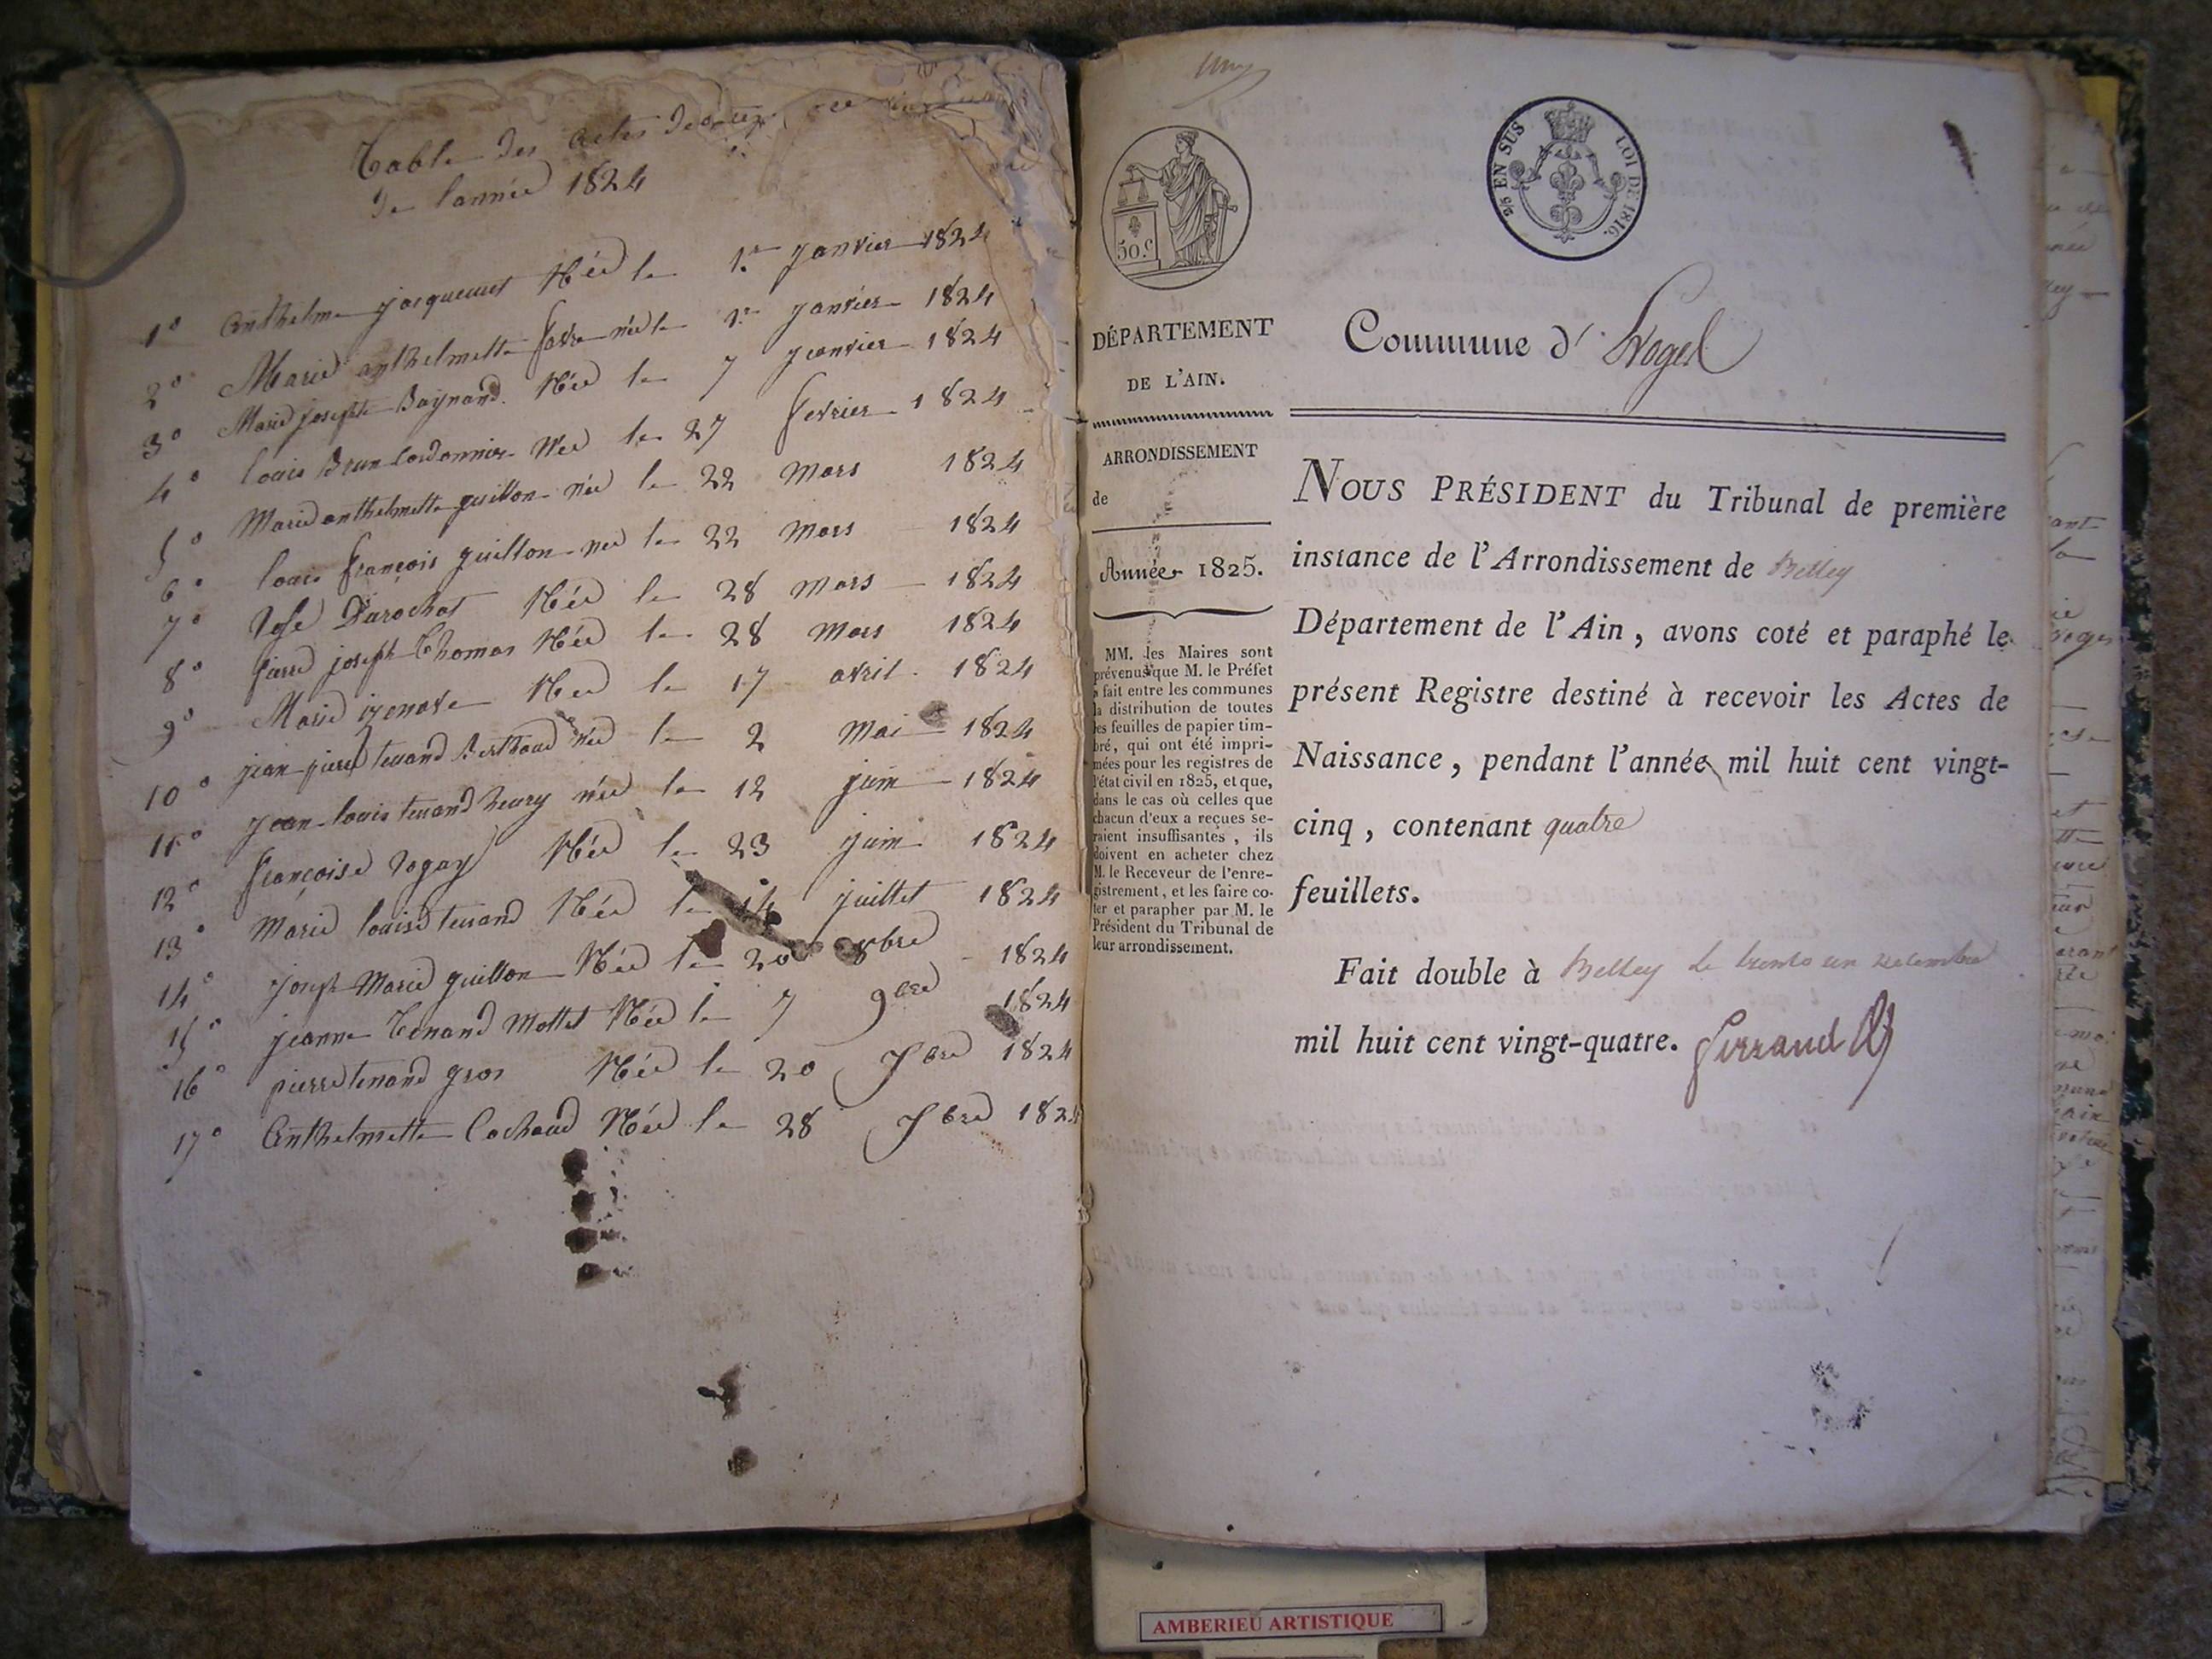 Table des actes de
de lannée 1824
1° Anthelme jacquemet Née le 1er janvier 1824
2° Marie anthelmette favre née le 1er janvier 1824
3° Marie josephte Baynard Née le 7 janvier 1824
4° louis Brun Cordonnier Née le 27 fevrier 1824
5° Marie anthelmette guillon née le 22 mars 1824
6° louis françois guillon née le 22 mars 1824
7° Rose Durochat Née le 28 mars 1824
8° pierre joseph Thomas Née le 28 mars 1824
9° Marie Née le 17 avril 1824
10° jean pierre tenand Berthaud Née le 2 mai 1824
11° jean louis tenand heury née le 12 juin 1824
12° françoise Née le 23 juin 1824
13° Marie louise tenand Née le 14 juillet 1824
14° joseph Marie guillon Née le 20 8bre 1824
15° jeanne tenand Mottet Née le 7 9bre 1824
16° pierre tenand gros Née le 20 Xbre 1824
17° Anthelmette Cochaud Née le 28 Xbre 1824
50.c
DÉPARTEMENT
DE L'AIN.
ARRONDISSEMENT
de
Année 1825.
MM. les Maires sont
prévenus que M. le Préfet
a fait entre les communes
la distribution de toutes
les feuilles de papier tim-
bré, qui ont été impri-
mées pour les registres de
l'état civil en 1825, et que,
dans le cas où celles que
chacun d'eux a reçues se-
raient insuffisantes, ils
doivent en acheter chez
M. le Receveur de l'enre-
gistrement, et les faire co-
ter et parapher par M. le
Président du Tribunal de
leur arrondissement.
2/5 EN SUS LOI DE 1816.
Commune d'
NOUS PRÉSIDENT du Tribunal de première
instance de l'Arrondissement de Belley
Département de l'Ain, avons coté et paraphé le
présent Registre destiné à recevoir les Actes de
Naissance, pendant l'année mil huit cent vingt-
cinq, contenant quatre
feuillets.
Fait double à Belley le trente un decembre
mil huit cent vingt-quatre.
AMBERIEU ARTISTIQUE